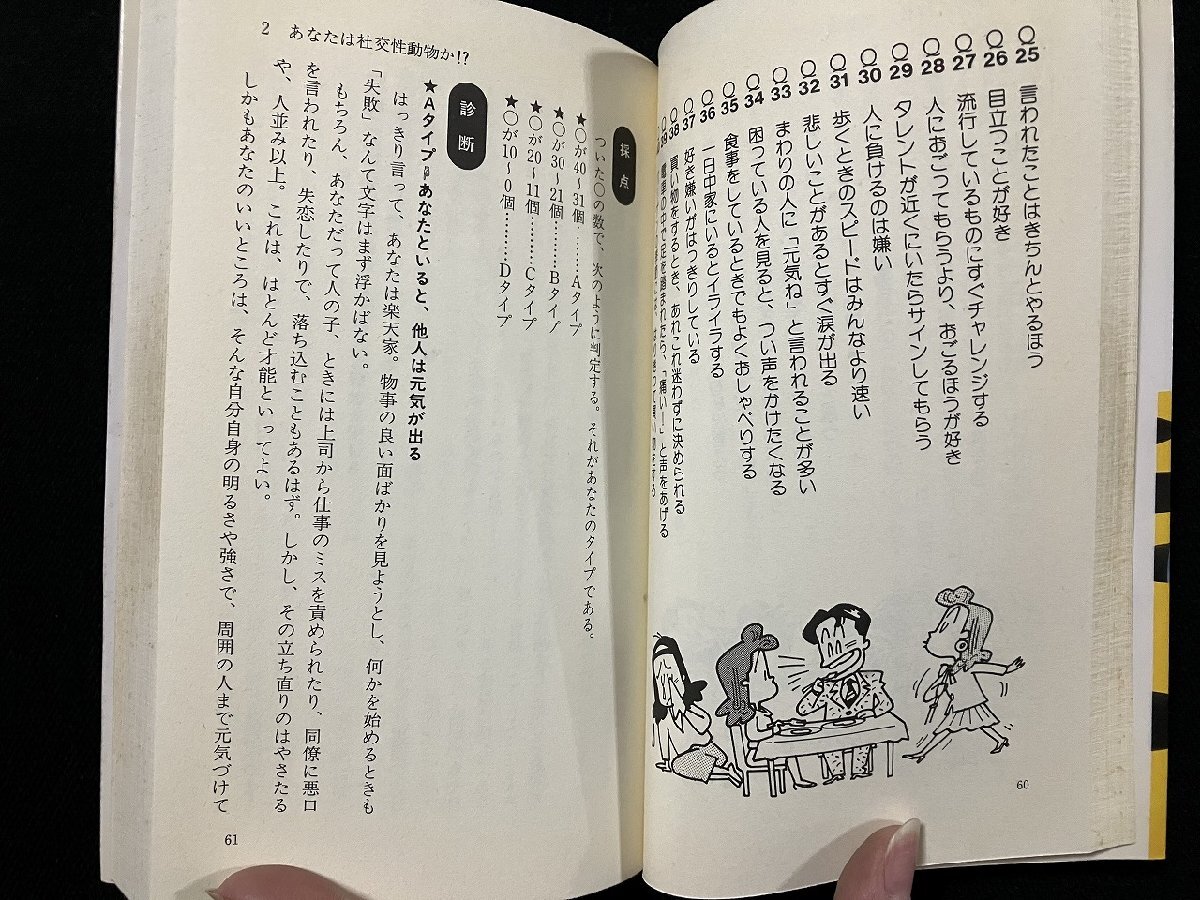 Q25 言われたことはきちんとやるほう
Q26 目立つことが好き
Q27 流行しているものにすぐチャレンジする
Q28 人におごってもらうより、おごるほうが好き
Q29 タレントが近くにいたらサインしてもらう
Q30 人に負けるのは嫌い
Q31 歩くときのスピードはみんなより速い
Q32 悲しいことがあるとすぐ涙が出る
Q33 まわりの人に「元気ね」と言われることが多い
Q34 困っている人を見ると、つい声をかけたくなる
Q35 食事をしているときでもよくおしゃべりする
Q36 一日中家にいるとイライラする
Q37 好き嫌いがはっきりしている
Q38 買い物をするとき、あれこれ迷わずに決められる
Q39 電車の中で足を踏まれたら、「痛い！」と声をあげる
60
採点
ついた○の数で、次のように判定する。それがあなたのタイプである。
★○が40〜31個……Aタイプ
★○が30〜21個……Bタイプ
★○が20〜11個……Cタイプ
★○が10〜0個……Dタイプ
診断
★Aタイプ　あなたといると、他人は元気が出る
はっきり言って、あなたは楽天家。物事の良い面ばかりを見ようとし、何かを始めるときも
「失敗」なんて文字はまず浮かばない。
もちろん、あなただって人の子、ときには上司から仕事のミスを責められたり、同僚に悪口
を言われたり、失恋したりで、落ち込むこともあるはず。しかし、その立ち直りのはやさたる
や、人並み以上。これは、ほとんど才能といってよい。
しかもあなたのいいところは、そんな自分自身の明るさや強さで、周囲の人まで元気づけて
2　あなたは社交性動物か!?
61